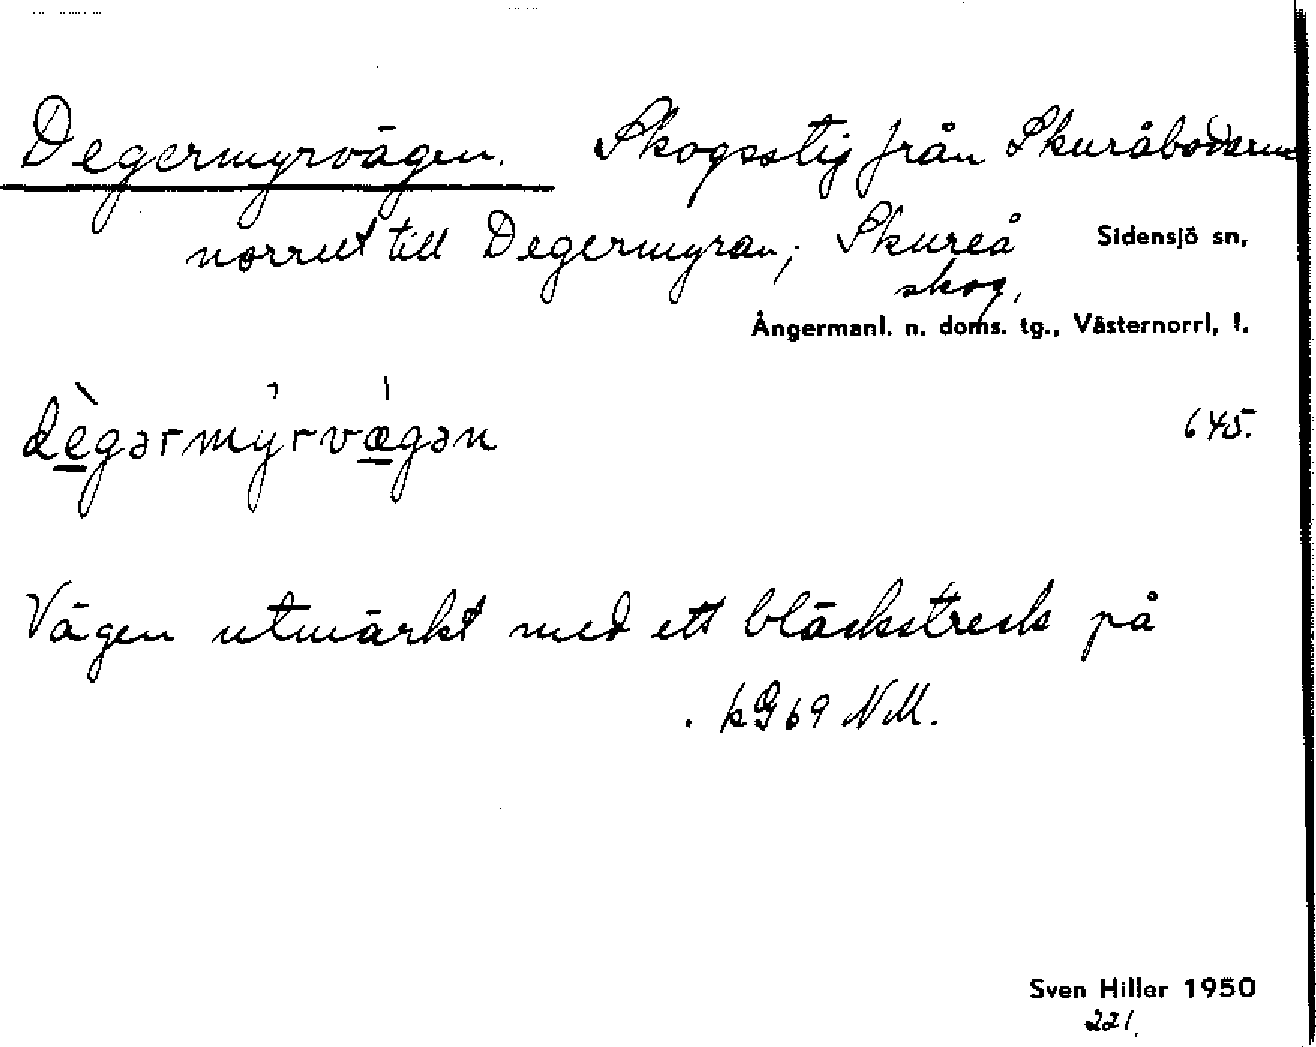 Degermyrvägen. Skogsstig från Skuråbodarna
norrut till Degermyran; Skureå Sidensjö sn,
skog,
Ångermanl. n. doms. tg., Västernorrl, l.
dègərmy̍rvæ̍gən 645.
Vägen utmärkt med ett bläckstreck på
. kG 69 NM.
Sven Hiller 1950
221.